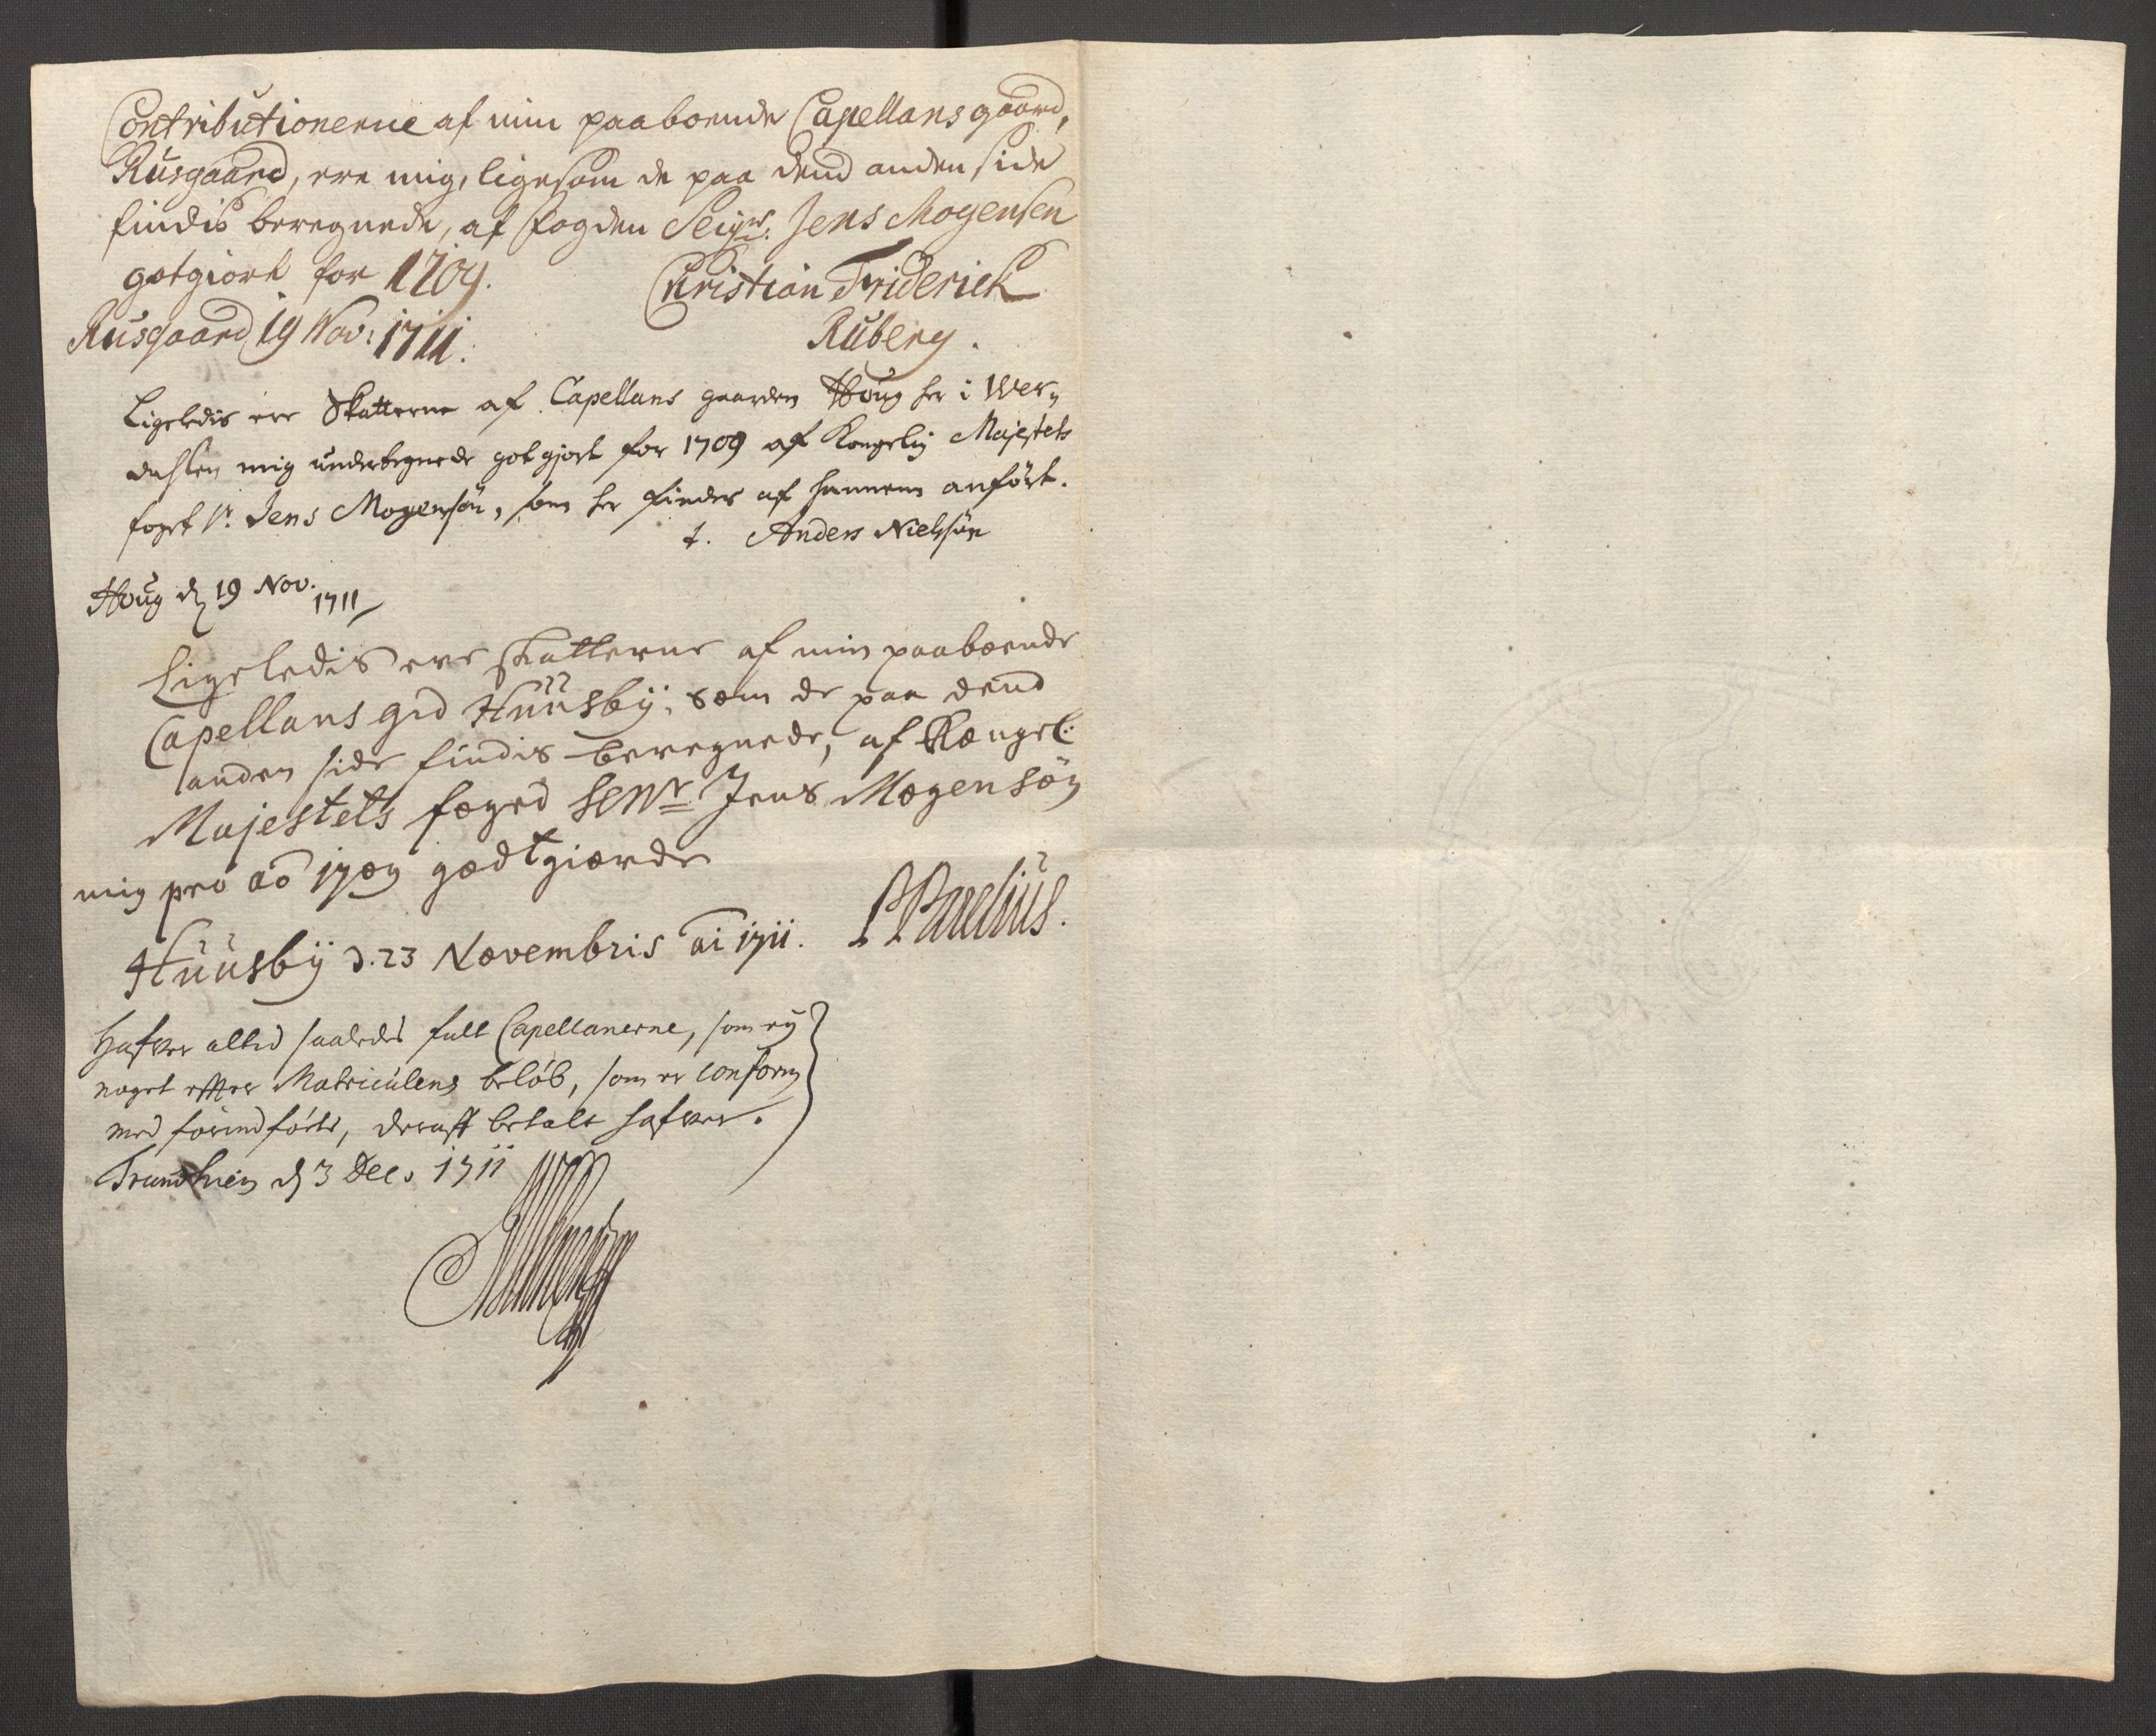 Contributionerne af min paaboende Capellans gaard,
Rusgaard, ere mig, ligesom de paa dend anden side
findis beregnede, af fogden Seigr. Jens Mogensen
gotgiort for 1709.
Christian Friderich
Ruberg.
Rusgaard 19 Nov: 1711.
Ligeledis ere Skatterne af Capellans gaarden Houg her i Wer-
dahlen mig underteignede got gjort for 1709 af Kongelig Majestets
foget Sr. Jens Mogensøn, som her findes af hannem anført.
t. Anders Nielssøn
Houg d 19 Nov. 1711
Ligeledis ere skatterne af min paaboende
Capellans grd Huusbÿ, som de paa dend
anden side findis beregnede, af Kongel:
Majestets foged Senr Jens Mogensøn
mig pro ao 1709 godtgiorde
Huusbÿ d. 23 Novembris ai 1711.
Hafver altid saaledes fult Capellanerne, som eÿ
noget efter Matriculens beløb, som er conform
med forindførte, deraff betalt hafver.
Trundhiem d 3 Dec. 1711